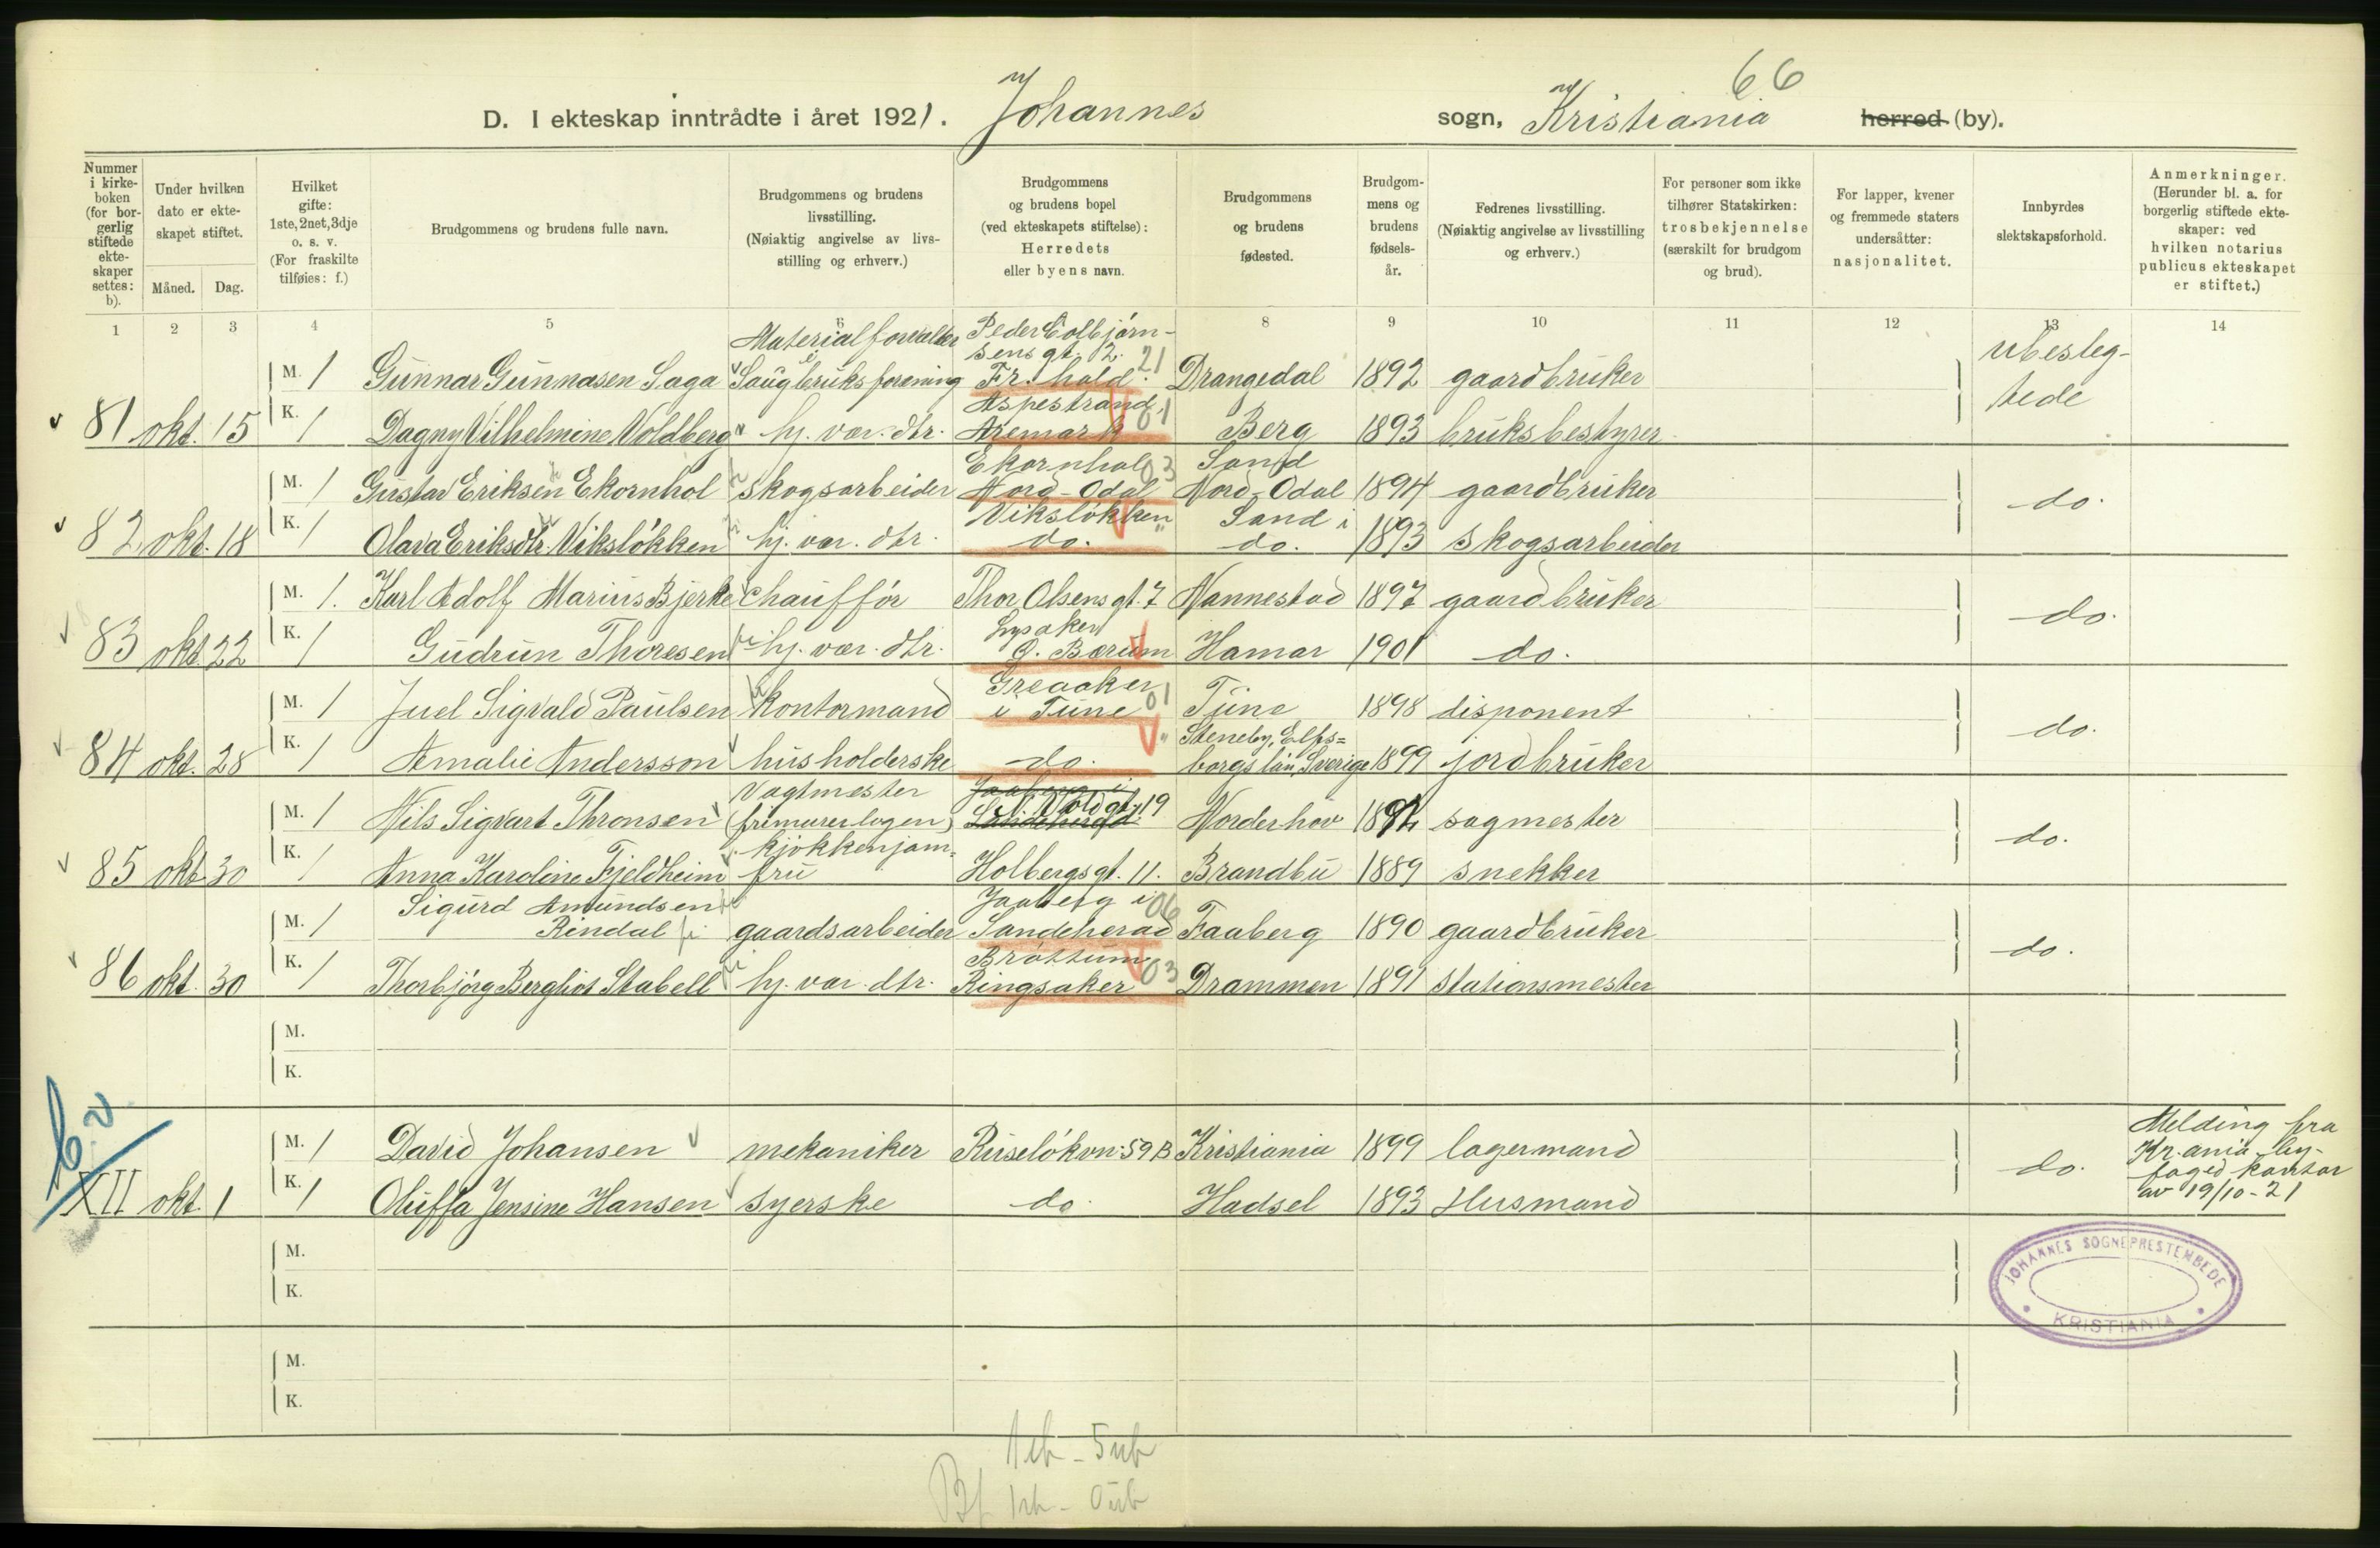 66
D. I ekteskap inntrådte i året 1921. Johannes sogn, Kristiania herred (by).
Nummer i kirke-boken (for bor-gerlig stiftede ekte-skaper settes: b).
Under hvilken dato er ekte-skapet stiftet.
Måned. Dag.
Hvilket gifte: 1ste, 2net, 3dje o. s. v. (For fraskilte tilføies: f.)
Brudgommens og brudens fulle navn.
Brudgommens og brudens livsstilling. (Nøiaktig angivelse av livs-stilling og erhverv.)
Brudgommens og brudens bopel (ved ekteskapets stiftelse): Herredets eller byens navn.
Brudgommens og brudens fødested.
Brudgom-mens og brudens fødsels-år.
Fedrenes livsstilling. (Nøiaktig angivelse av livsstilling og erhverv.)
For personer som ikke tilhører Statskirken: trosbekjennelse (særskilt for brudgom og brud).
For lapper, kvener og fremmede staters undersåtter: nasjonalitet.
Innbyrdes slektskapsforhold.
Anmerkninger. (Herunder bl. a. for borgerlig stiftede ekte-skaper: ved hvilken notarius publicus ekteskapet er stiftet.)
1 2 3 4 5 6 8 9 10 11 12 13 14
Materialforvalter Peder Colbjörn-
sens gt. 12. 21
M. 1 Gunnar Gunnasen Saga Saugbruksforening Fr.hald. Drangedal 1892 gaardbruker ubesleg-
tede
Aspestrand, 01
81 okt. 15 K. 1 Dagny Vilhelmine Voldberg hj. vær. dtr. Aremark Berg 1893 bruksbestyrer
Ekornhol 03 Sand
M. 1 Gustav Eriksen Ekornhol skogsarbeider Nord-Odal Nord-Odal 1894 gaardbruker do.
Vikslökken Sand i
82 okt. 18 K. 1 Olava Eriksdtr. Vikslökken hj. vær. dtr. do. " do. 1893 skogsarbeider
M. 1. Karl Adolf Marius Bjerke chaufför Thor Olsens gt. 7 Nannestad 1897 gaardbruker do.
Lysaker
83 okt. 22 K. 1 Gudrun Thoresen hj. vær. dtr. Ø. Bærum Hamar 1901 do.
Greaaker 01
M. 1 Juel Sigvald Paulsen kontormand i Tune Tune 1898 disponent do.
Steneby, Elfs=
84 okt. 28 K. 1 Amalie Andersson husholderske do. " borgs län, Sverige 1899 jordbruker
Vagtmester Jaaberg i
M. 1 Nils Sigvart Thronsen (frimurerlogen) Sandeherad. N. Voldgt. 19 Norderhov 1894 sagmester do.
kjökkenjom=
85 okt. 30 K. 1 Anna Karoline Fjeldheim fru Holbergsgt. 11. Brandbu 1889 snekker
Sigurd Amundsen Jaaberg i 06
M. 1 Rindal gaardsarbeider Sandeherad Faaberg 1890 gaardbruker do.
Bröttum 03
86 okt. 30 K. 1 Thorbjörg Bergliot Stabell hj. vær. dtr. Ringsaker Drammen 1891 stationsmester
M.
K.
Melding fra
M. 1 David Johansen mekaniker Ruselökvn. 59 B Kristiania 1899 lagermand do. Kr.ania by-
foged kontor
XII okt. 1 K. 1 Oluffa Jensine Hansen syerske do. Hadsel 1893 Husmand av 19/10-21
M.
K.
JOHANNES SOGNEPRESTEMBEDE
KRISTIANIA
M.
K.